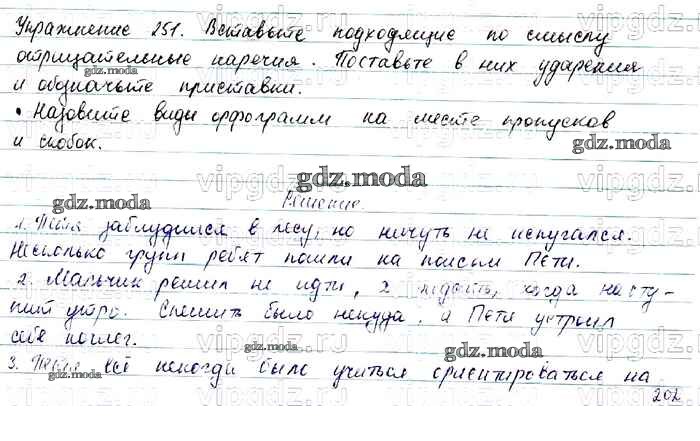 Упражнение 251. Вставьте подходящие по смыслу
отрицательные наречия. Поставьте в них ударения
и обозначьте приставки.
• Назовите виды орфограмм на месте пропусков
и скобок.
Решение.
1. Петя заблудился в лесу, но ничуть не испугался.
Несколько групп ребят пошли на поиски Пети.
2. Мальчик решил не идти, а ждать, когда насту-
пит утро. Спешить было некуда, и Петя устроил
себе ночлег.
3. Пете всё некогда было учиться ориентироваться на
202
gdz.moda
gdz.moda
gdz.moda
gdz.moda
gdz.moda
gdz.moda
gdz.moda
gdz.moda
vipgdz.ru